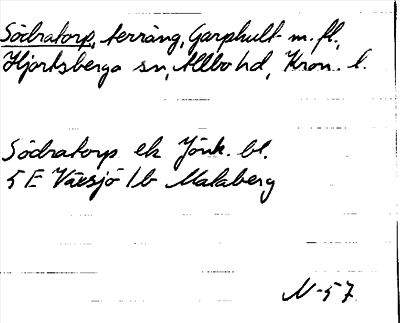 Södratorp, terräng, Garphult m. fl.,
Hjortsberga sn, Allbo hd, Kron. l.
Södratorp ek Jönk. bl.
5 E Växsjö 1b Malaberg
N-57